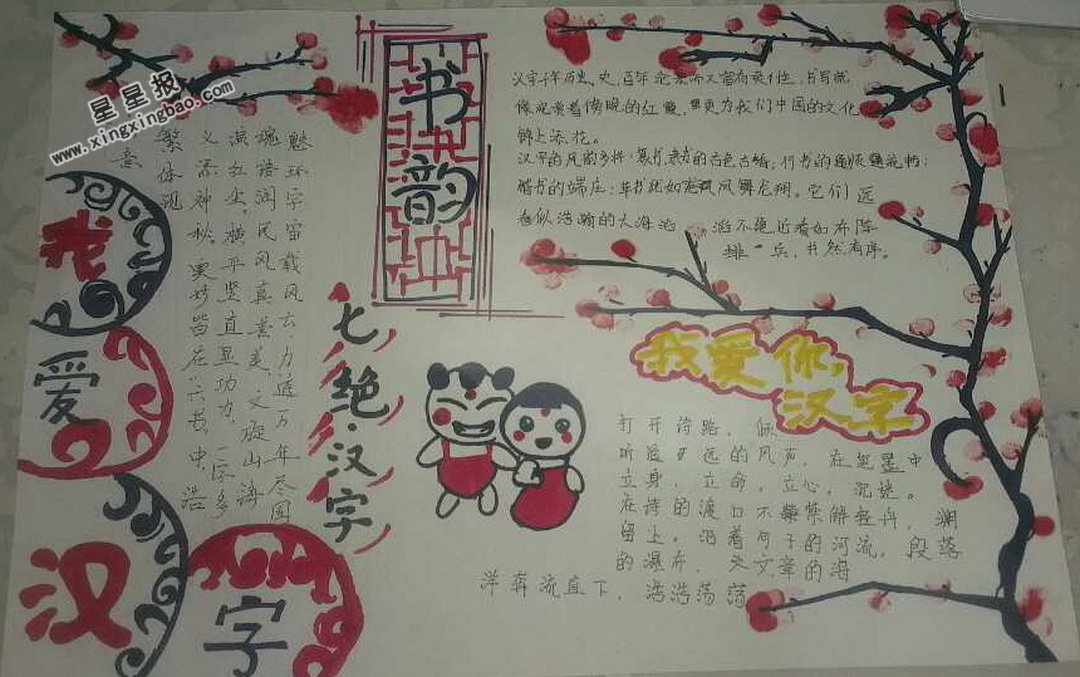 星星报
www.xingxingbao.com
书韵
汉字千年历史、史,百年沧桑而又富有灵性,书写就
像观赏着傍晚的红霞,更为我们中国的文化
锦上添花。
汉字的风韵多样:篆书隶书的古色古香;行书的流畅;
楷书的端庄;草书犹如凤舞龙翔。它们远
看似浩瀚的大海滔滔不绝近看如布阵
排兵,井然有序。
我爱
汉
字
七绝·汉字
魅环宇宙载风云,力透万年尽国
魂语润风风真善美,文旋山海
演五尘。横平竖直显功力,二字多
义添神秘。更妙皆在兴书中,浩
繁体现
意
我爱你,
汉字
打开诗路,
听透旷远的风声,在笔墨中
立身,立命,立心,沉迷。
在诗的渡口不禁禁解轻舟,溯
留上。沿着句子的河流,段落
的瀑布,文章的海
洋奔流直下,浩浩荡荡